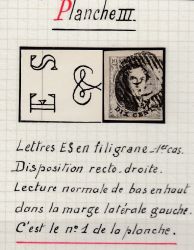 Planche III.
ES
DIX CENTS
Lettres ES en filigrane _1er cas.
Disposition recto_droite.
Lecture normale de bas en haut
dans la marge latérale gauche.
C'est le n°1 de la planche.